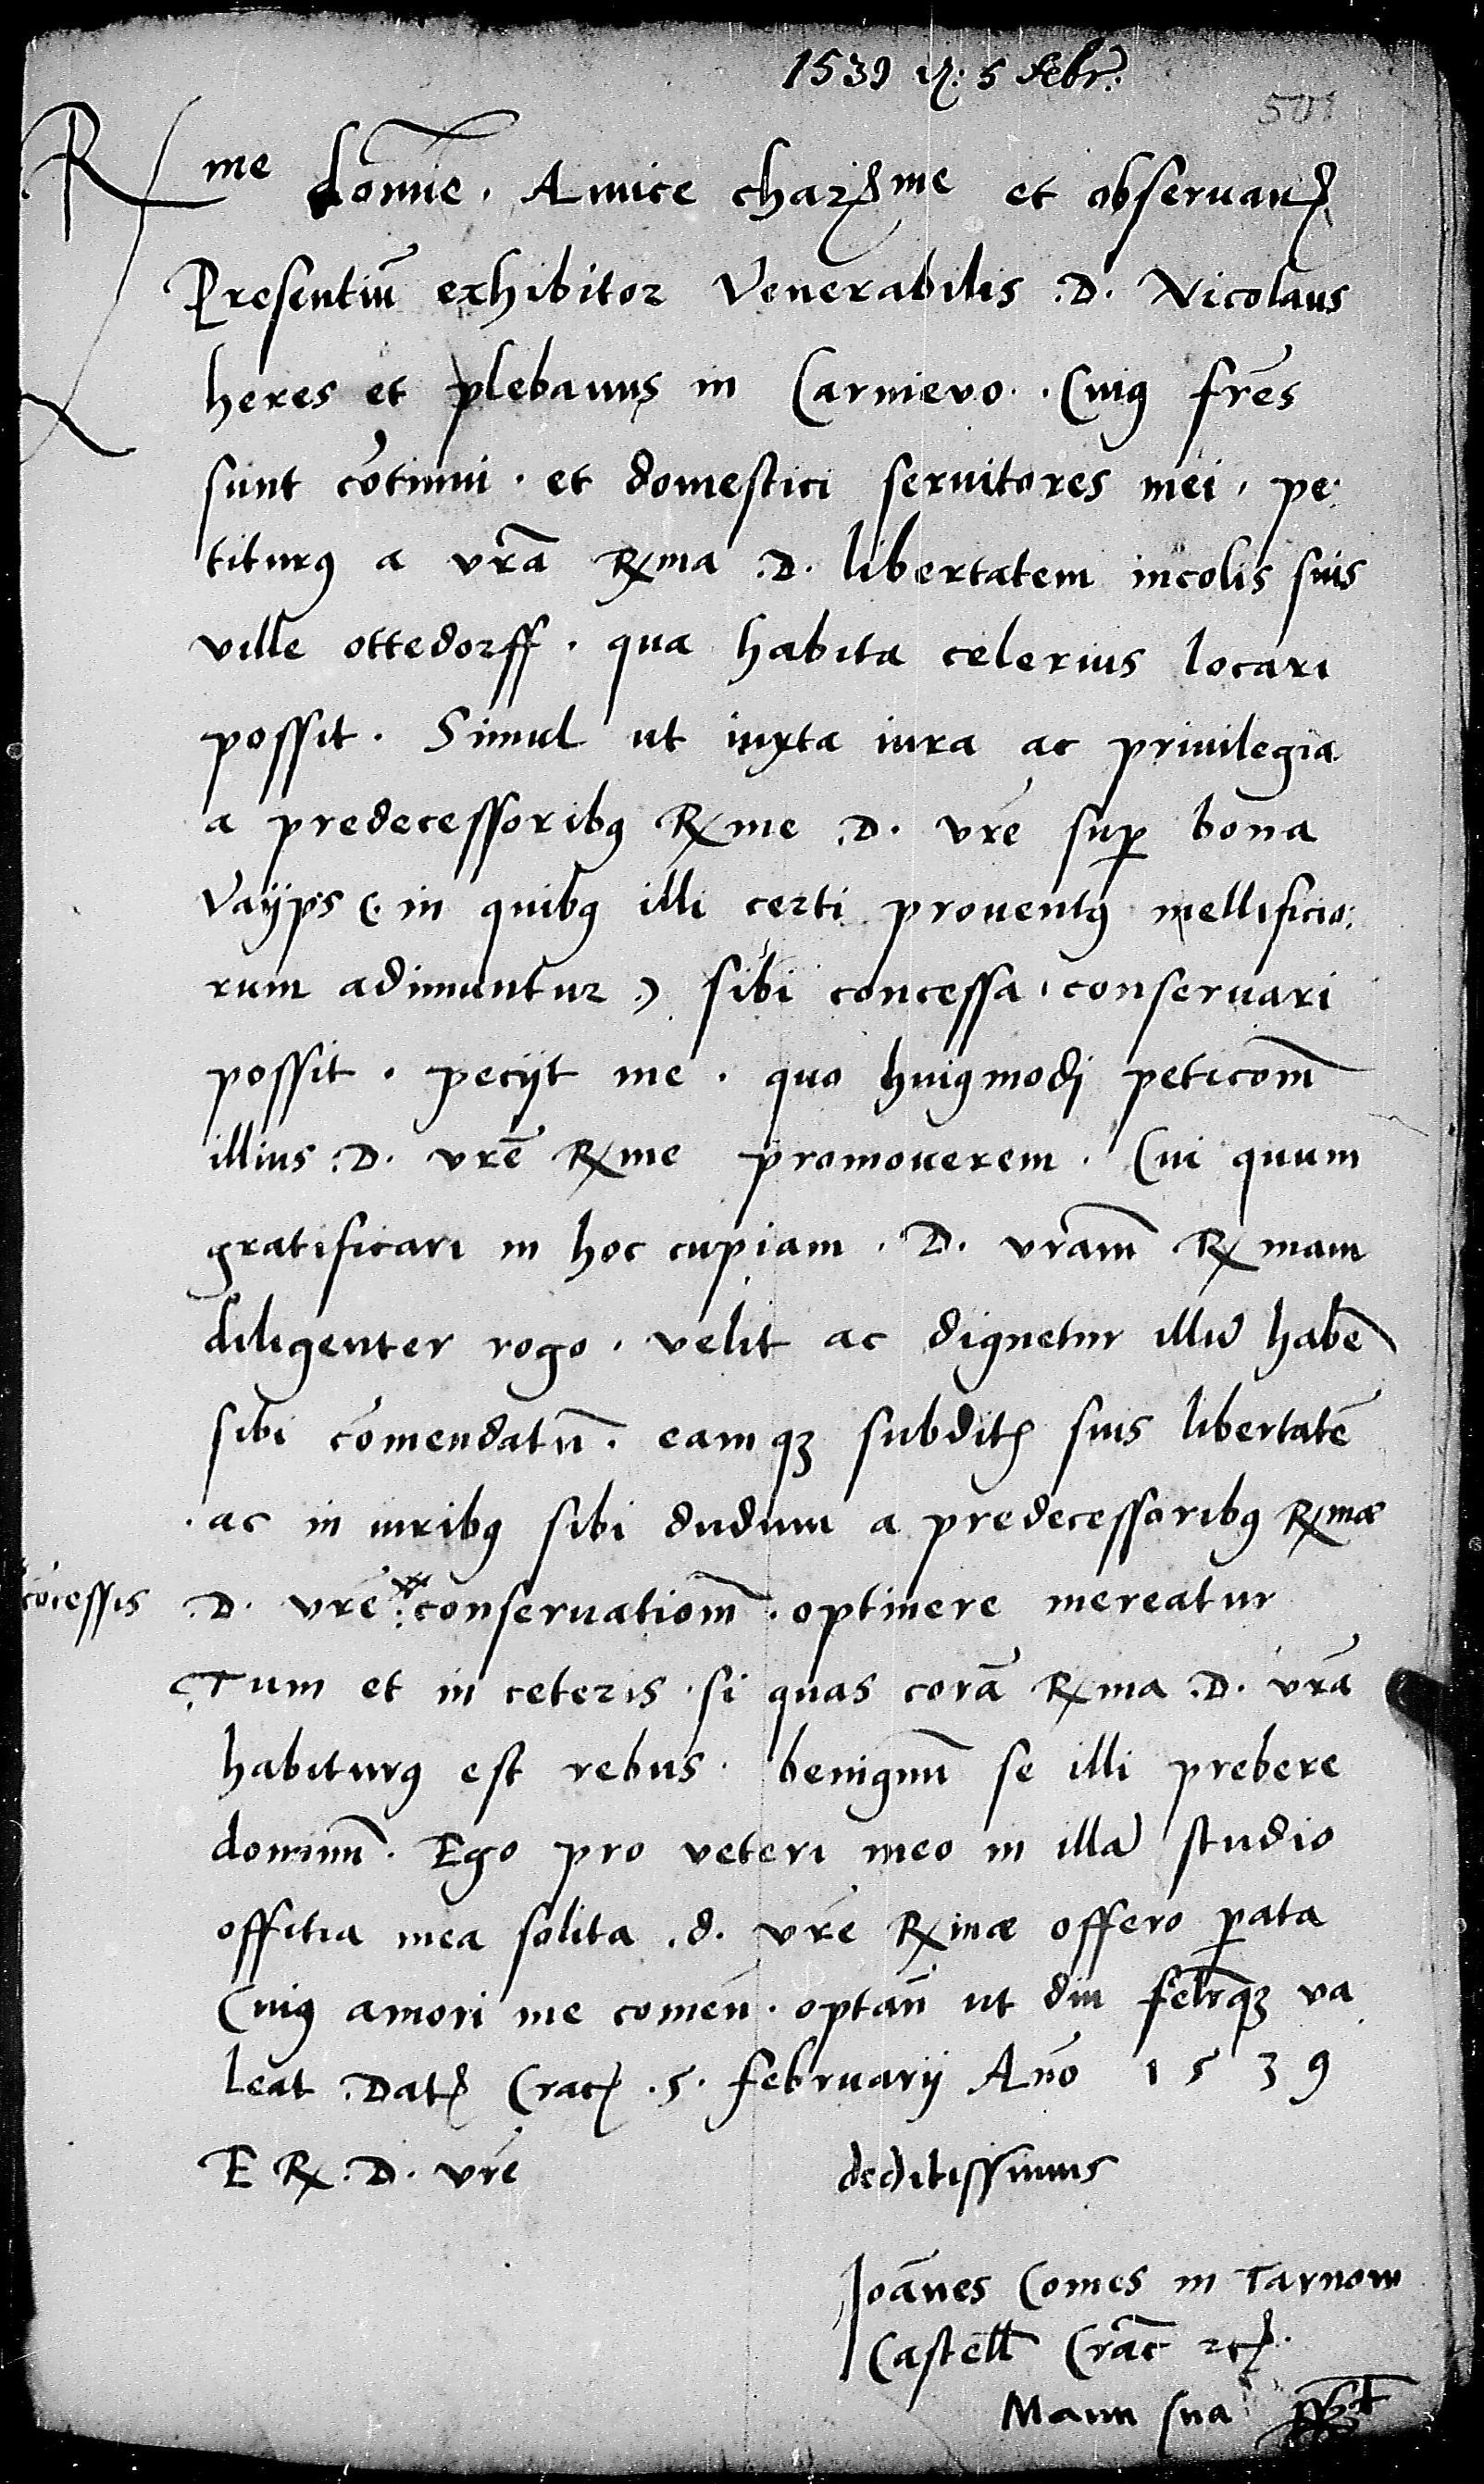 1539 d. 5 Febr.
501
Rme domine. Amice charme et observan
Presentiũ exhibitor Venerabilis .D. Nicolaus
heres et plebanus in Carnievo. Cuiꝰ frẽs
sunt cõtinui. et domestici servitores mei, pe:
titurꝰ a vrã Rma .D. libertatem incolis suis
ville ottedorff. qua habita celerius locari
possit. Simul ut iuxta iura ac privilegia
a predecessoribꝰ Rme .D. vrẽ suꝑ bona
Vayps (. in quibꝰ illi certi proventꝰ mellificio:
rum adimuntur .) sibi concessa, conservari
possit. peciit me. quo huiꝰmodi peticõm
illius .D. vrẽ Rme promoverem. Cui quum
gratificari in hoc cupiam. D. vrãm Rmam
diligenter rogo. velit ac dignetur illũ habẽ
sibi cõmendatũ. eamqꝫ subditꝭ suis libertatẽ
. ac in iuribꝰ sibi dudum a predecessoribꝰ Rmæ
cõcessis
.D. vrẽ: conservatiõm. optinere mereatur
Tum et in ceteris. si quas corã Rma .D. vrã
habiturꝰ est rebus. benignũ se illi prebere
dominũ. Ego pro veteri meo in illã studio
offitia mea solita .d. vrẽ Rmæ offero ꝑata
Cuiꝰ amori me comẽn. optañ ut diu felr̃qꝫ va
leat .Datꝭ Cracꝭ .5. februarii Añο 1539
E R .D. vrẽ deditissimus
Joãnes Comes in Tarnow
Castell Crac̃ etc.
Manu sua sspt